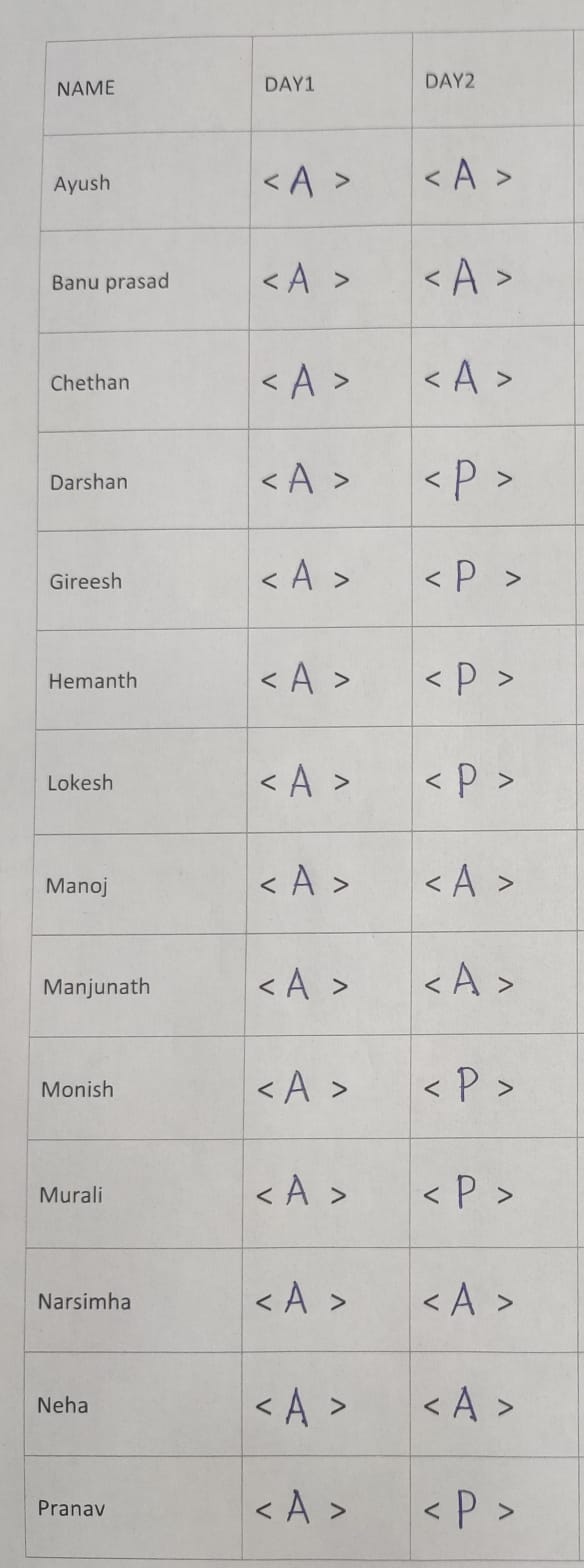 NAME DAY1 DAY2
Ayush < A > < A >
Banu prasad < A > < A >
Chethan < A > < A >
Darshan < A > < P >
Gireesh < A > < P >
Hemanth < A > < P >
Lokesh < A > < P >
Manoj < A > < A >
Manjunath < A > < A >
Monish < A > < P >
Murali < A > < P >
Narsimha < A > < A >
Neha < A > < A >
Pranav < A > < P >